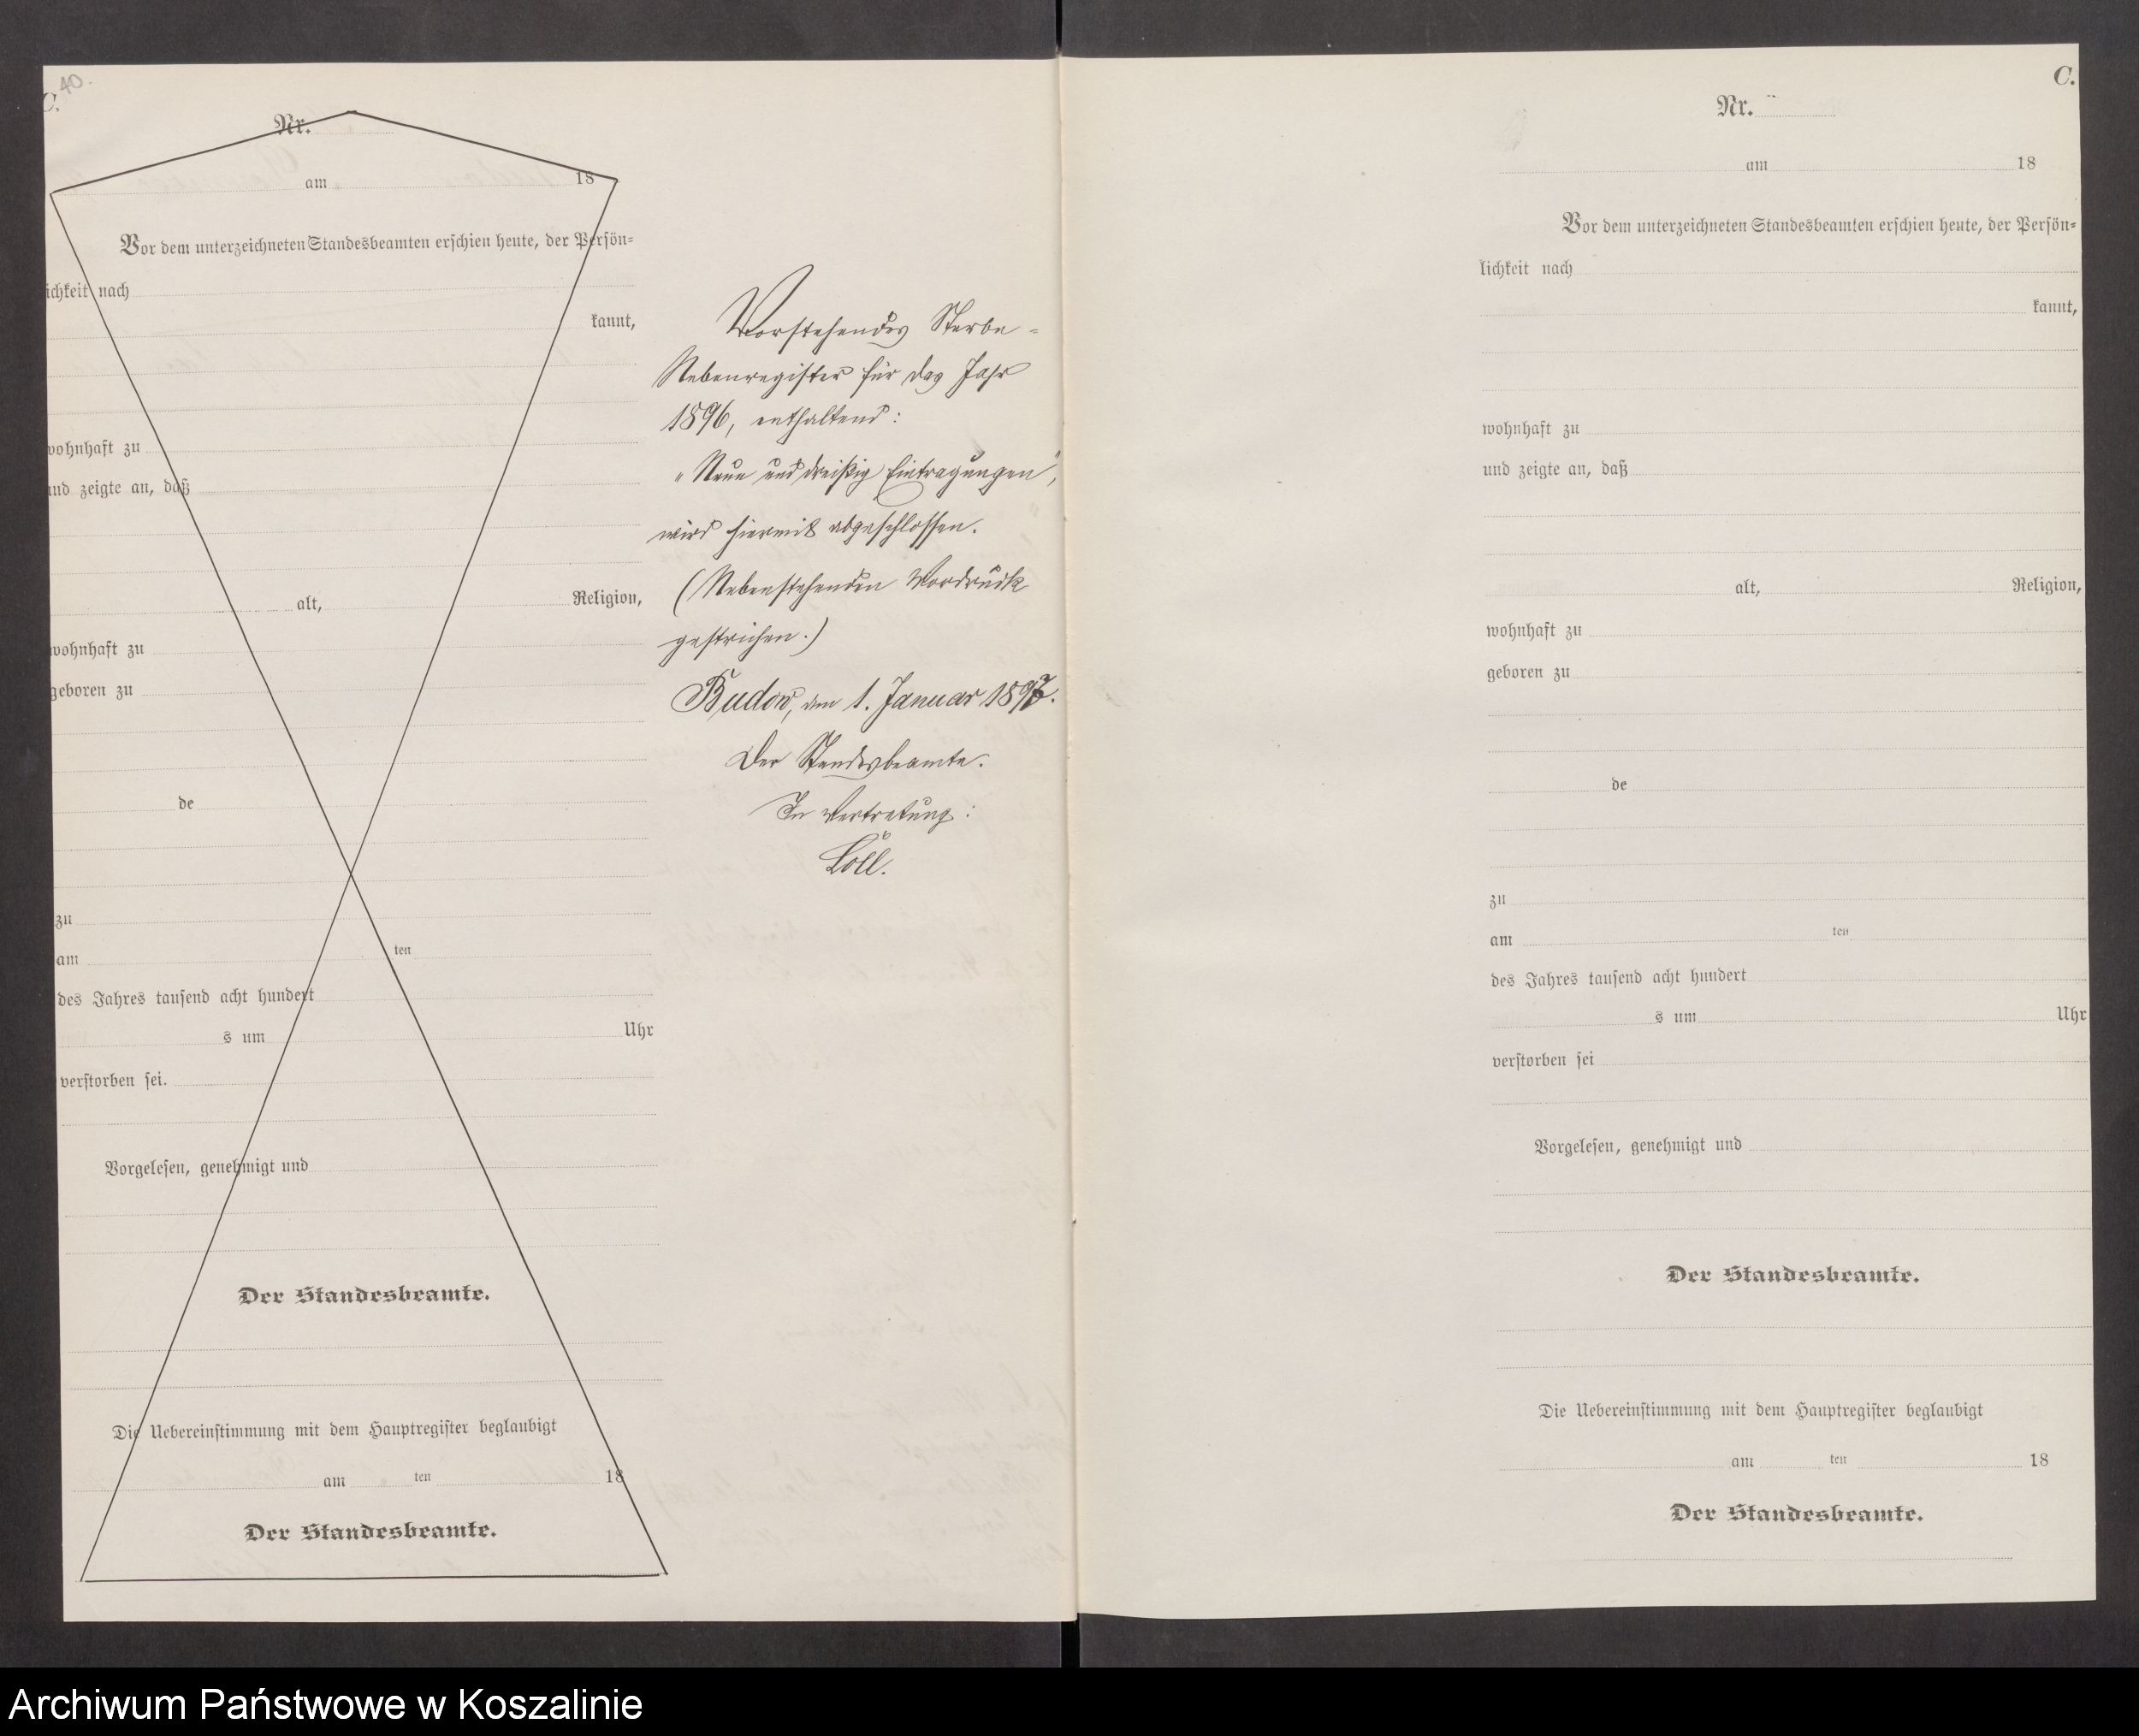 C. 40.
Nr.
am 18
Vor dem unterzeichneten Standesbeamten erschien heute, der Persön=
lichkeit nach
kannt,
wohnhaft zu
und zeigte an, daß
alt, Religion,
wohnhaft zu
geboren zu
de
zu
am ten
des Jahres tausend acht hundert
s um Uhr
verstorben sei.
Vorgelesen, genehmigt und
Der Standesbeamte.
Die Uebereinstimmung mit dem Hauptregister beglaubigt
am ten 18
Der Standesbeamte.
Vorstehendes Sterbe-
Nebenregister für das Jahr
1896, enthaltend:
"Neun und dreißig Eintragungen",
wird hiermit abgeschlossen.
(Nebenstehenden Vordruck
gestrichen.)
Budow, am 1. Januar 1897.
Der Standesbeamte.
In Vertretung:
Löll.
C.
Nr.
am 18
Vor dem unterzeichneten Standesbeamten erschien heute, der Persön=
lichkeit nach
kannt,
wohnhaft zu
und zeigte an, daß
alt, Religion,
wohnhaft zu
geboren zu
de
zu
am ten
des Jahres tausend acht hundert
s um Uhr
verstorben sei
Vorgelesen, genehmigt und
Der Standesbeamte.
Die Uebereinstimmung mit dem Hauptregister beglaubigt
am ten 18
Der Standesbeamte.
Archiwum Państwowe w Koszalinie